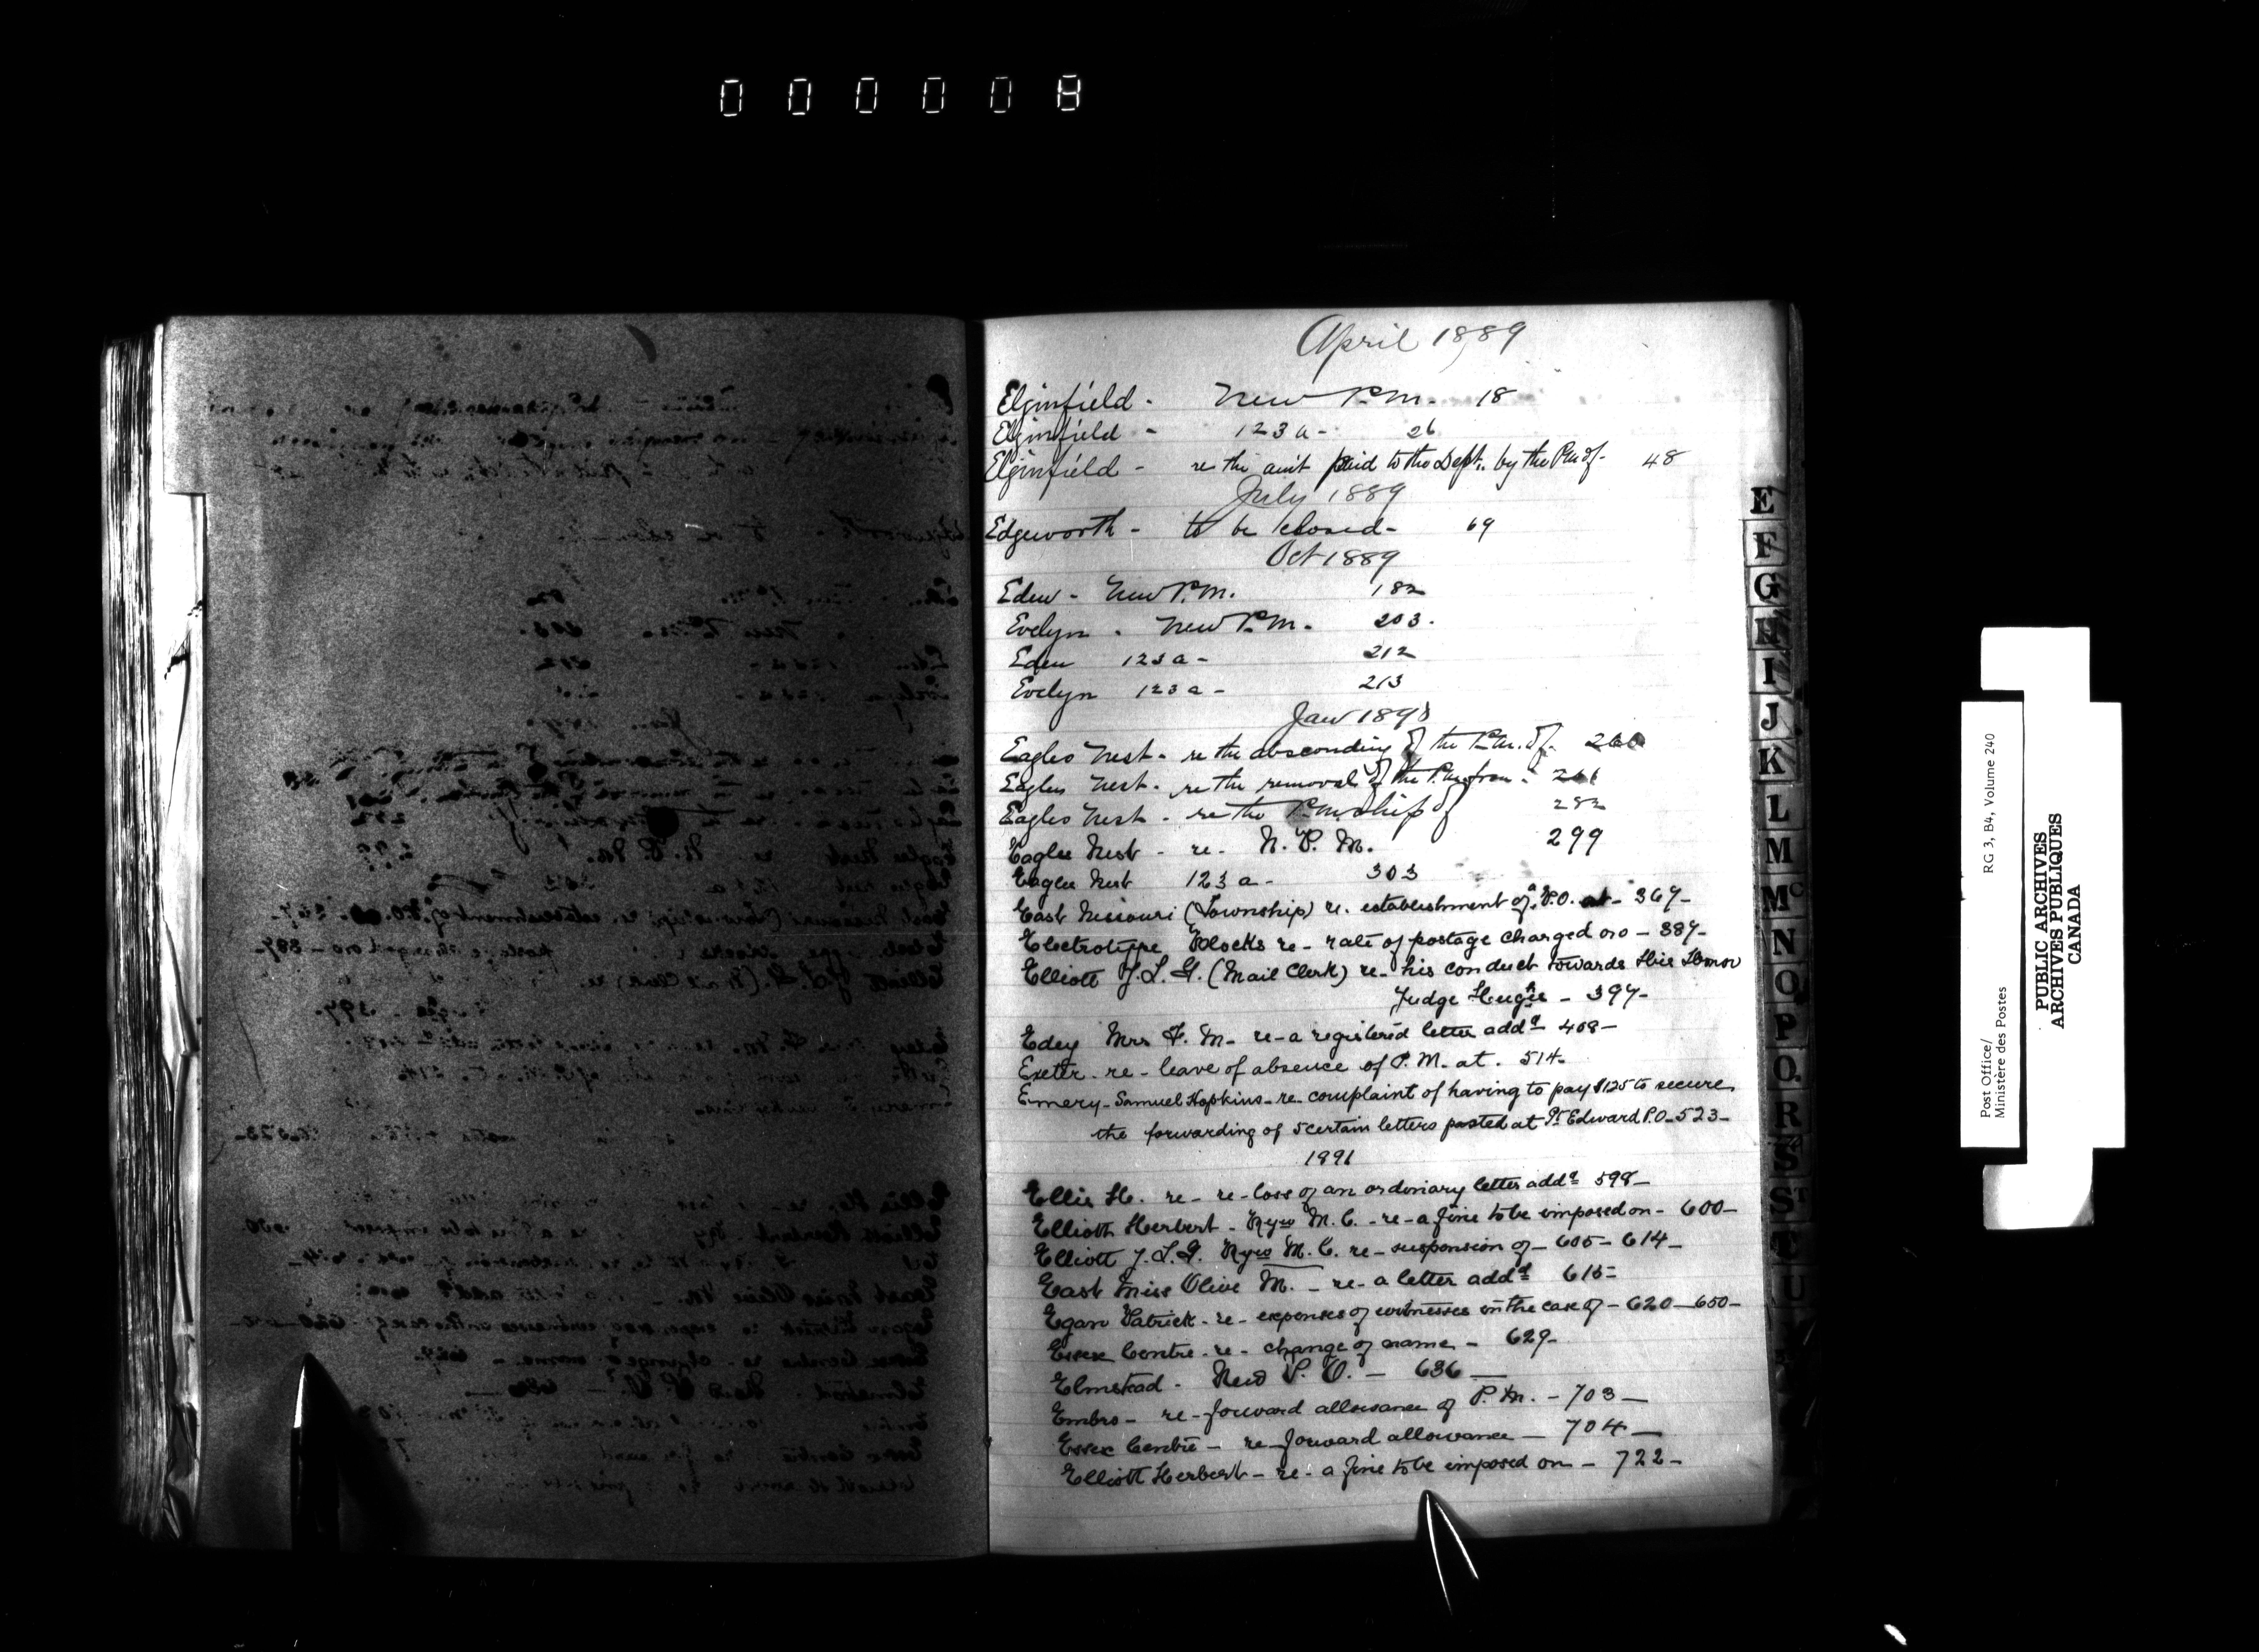 000008
April 1889
Elginfield - New P.M. - 18
Elginfield - 123 a - 26
Elginfield - re the amt paid to the Dept. by the P.M of - 48
July 1889
Edgeworth - to be closed - 69
Oct 1889
Eden - New P.M. 182
Evelyn - New P.M. - 203.
Eden 123 a - 212
Evelyn 123 a - 213
Jan 1890
Eagles Nest - re the absconding of the P.M. of - 260
Eagles Nest - re the removal of the P.M. from - 261
Eagles Nest - re the P.M.ship of 282
Eagles Nest - re - N. P. M. 299
Eagles Nest 123 a - 303
East Nissouri (Township) re. establishment of a P.O. at - 367 -
Electrotype Blocks re - rate of postage charged on - 387 -
Elliott J. L. G. (Mail Clerk) re - his conduct towards His Honor
Judge Hughs - 397 -
Edey Mrs F. M - re - a registered letter addd 408 -
Exeter - re - leave of absence of P.M. at. 514 -
Emery - Samuel Hopkins - re complaint of having to pay $125 to secure
the forwarding of 5 certain letters posted at Pt Edward P.O - 523 -
1891
Ellis H. re - re - loss of an ordinary letter addd 598 -
Elliott Herbert - Ryw M. C. - re - a fine to be imposed on - 600 -
Elliott J. L. G. Ryw M. C. re - suspension of - 605 - 614 -
East Miss Olive M. - re - a letter addd 615 -
Egan Patrick - re - expenses of witnesses in the case of - 620 - 650 -
Essex Centre - re - change of name - 629 -
Elmstead - New P. O. - 636 -
Embro - re - forward allowance of P.M. - 703 -
Essex Centre - re forward allowance - 704 -
Elliott Herbert - re - a fine to be imposed on - 722 -
E
F
G
H
I
J
K
L
M
Mc
N
O
P
Q
R
S
ST
T
U
Post Office/
Ministère des Postes
RG 3, B4, Volume 240
PUBLIC ARCHIVES
ARCHIVES PUBLIQUES
CANADA